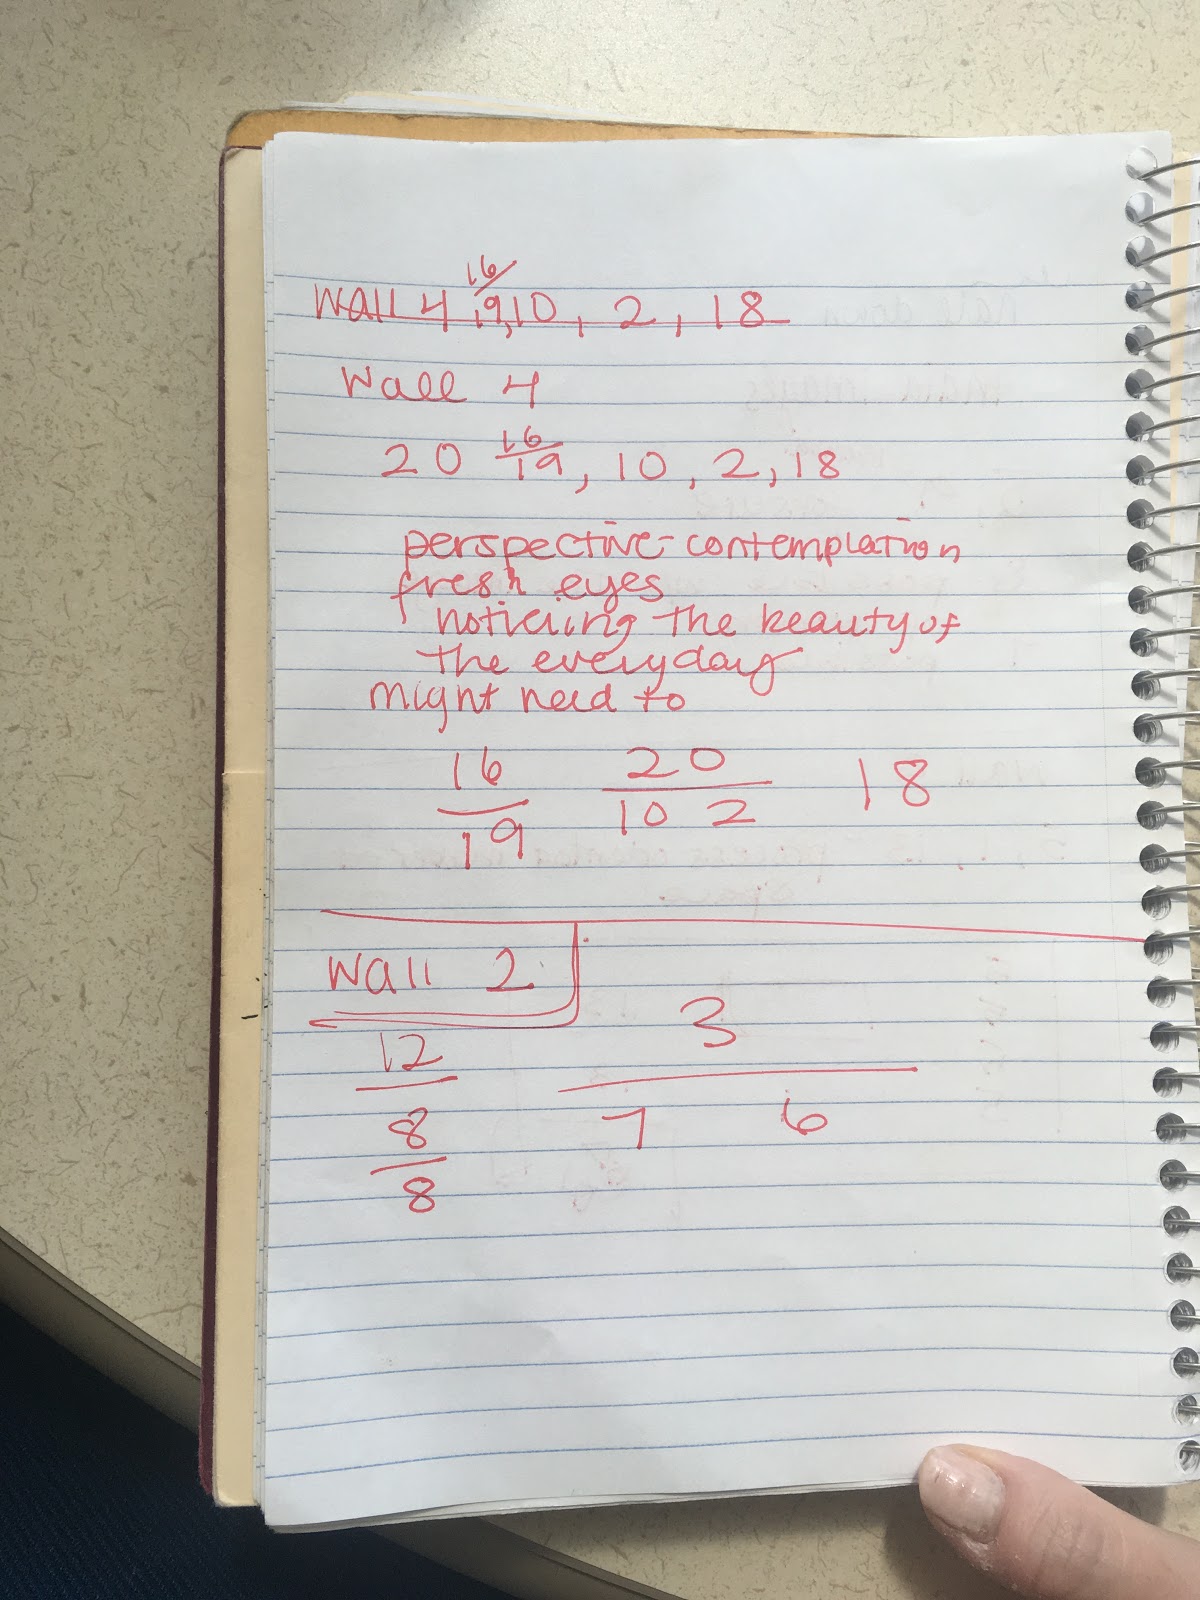 16
Wall 4 19, 10, 2, 18
Wall 4
20 16/19, 10, 2, 18
perspective - contemplation
fresh eyes
noticiing the beauty of
the everyday
might need to
16 20 18
19 10 2
Wall 2
12 3
8 7 6
8